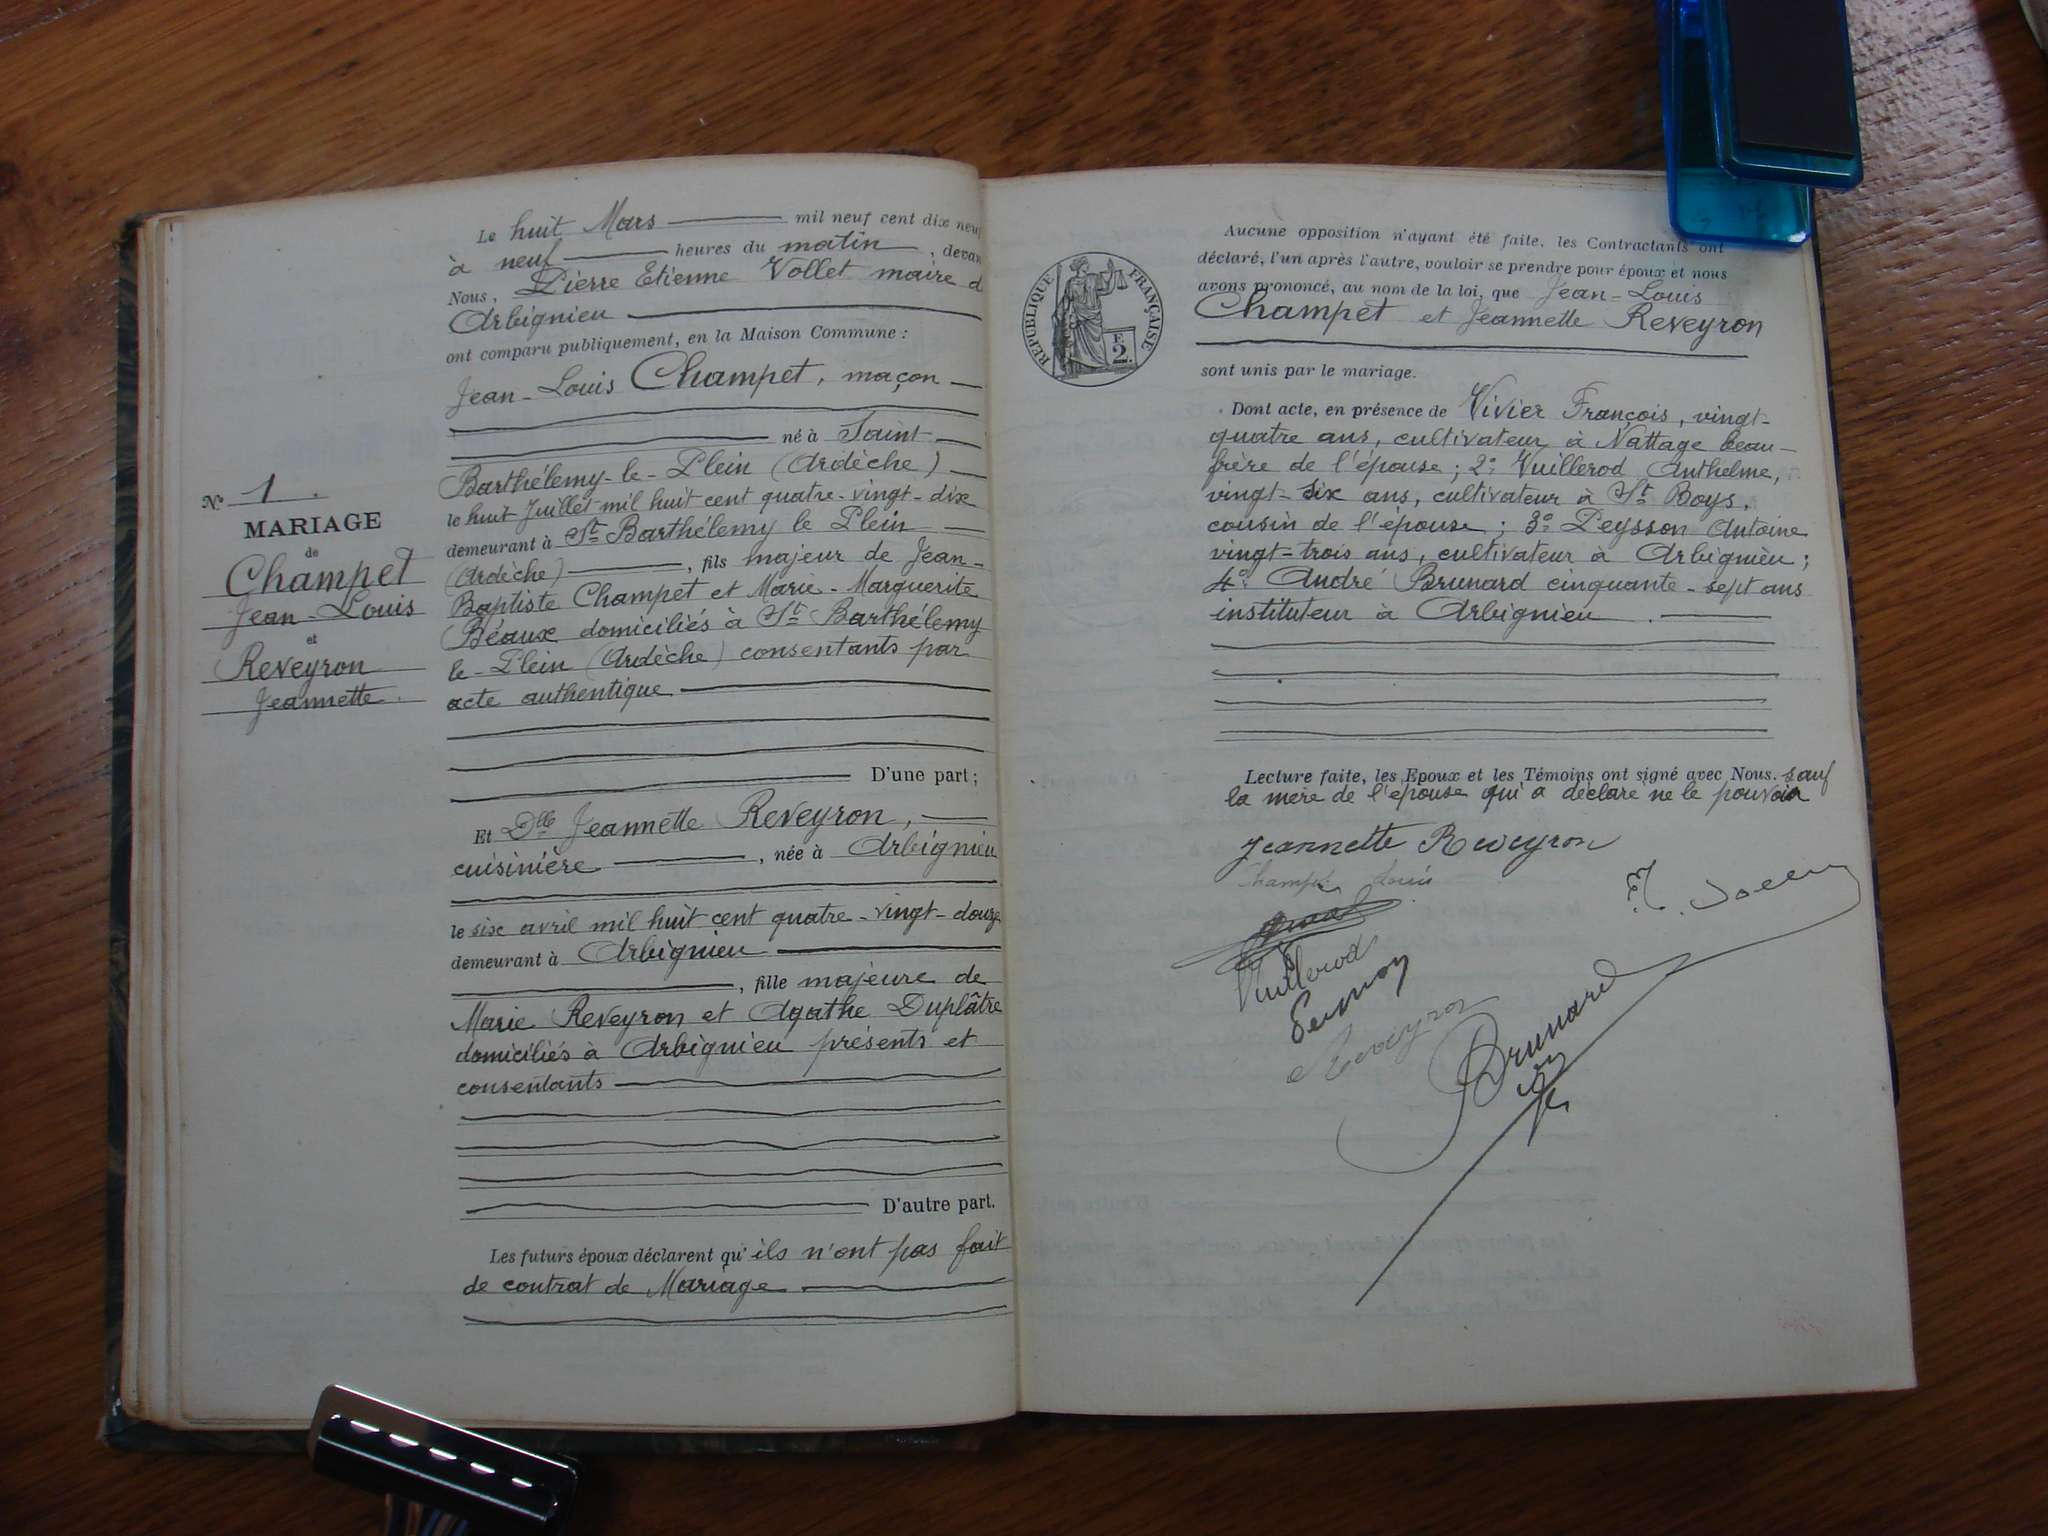 Nº 1.
MARIAGE
de
Champet
Jean-Louis
et
Reveyron
Jeannette.
Le huit Mars mil neuf cent dix neuf
à neuf heures du matin, devan
Nous, Pierre Etienne Vollet maire d
Arbignieu
ont comparu publiquement, en la Maison Commune :
Jean-Louis Champet, maçon
né à Saint-
Barthélemy-le-Plein (Ardèche)
le huit Juillet mil huit cent quatre-vingt-dix
demeurant à St Barthélemy le Plein
(Ardèche), fils majeur de Jean-
Baptiste Champet et Marie-Marguerite
Béaux domiciliés à St Barthélemy
le-Plein (Ardèche) consentants par
acte authentique
D'une part;
Et Dlle Jeannette Reveyron,
cuisinière, née à Arbignieu
le six avril mil huit cent quatre-vingt-douze
demeurant à Arbignieu
, fille majeure de
Marie Reveyron et Agathe Duplâtre
domiciliés à Arbignieu présents et
consentants
D'autre part.
Les futurs époux déclarent qu'ils n'ont pas fait
de contrat de Mariage
RÉPUBLIQUE FRANÇAISE
E
2
Aucune opposition n'ayant été faite, les Contractants ont
déclaré, l'un après l'autre, vouloir se prendre pour époux et nous
avons prononcé, au nom de la loi, que Jean-Louis
Champet et Jeannette Reveyron
sont unis par le mariage.
Dont acte, en présence de Vivier François, vingt-
quatre ans, cultivateur à Nattage beau-
frère de l'épouse; 2º Vuillerod Anthelme,
vingt-six ans, cultivateur à St Boys,
cousin de l'épouse; 3º Peysson Antoine
vingt-trois ans, cultivateur à Arbignieu;
4º André Brunard cinquante-sept ans
instituteur à Arbignieu.
Lecture faite, les Epoux et les Témoins ont signé avec Nous. sauf
la mère de l'épouse qui a déclaré ne le pouvoir
Jeannette Reveyron
Champet Louis
Vuillerod
Reveyron
Brunard